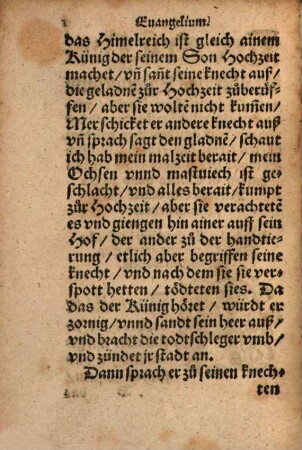 Euangelium.
das Himelreich ist gleich ainem
Künig der seinem Son Hochzeit
machet / vñ sañt seine knecht auß /
die geladnē zůr Hochzeit zůberůf-
fen / aber sie woltē nicht kum̃en /
Mer schicket er andere knecht auß
vñ sprach sagt den gladnē / schaut
ich hab mein malzeit berait / mein
Ochsen vnnd mastuiech ist ge-
schlacht / vnd alles berait / kumpt
zůr Hochzeit / aber sie verachtetē
es vnd giengen hin ainer auff sein
Hof / der ander zů der handtie-
rung / etlich aber begriffen seine
knecht / vnd nach dem sie sie ver-
spott hetten / tödteten sies. Da
das der Künig höret / würdt er
zornig / vnnd sandt sein heer auß /
vnd bracht die todtschleger vmb /
vnd zündet jr stadt an.
Dann sprach er zů seinen knech-
ten